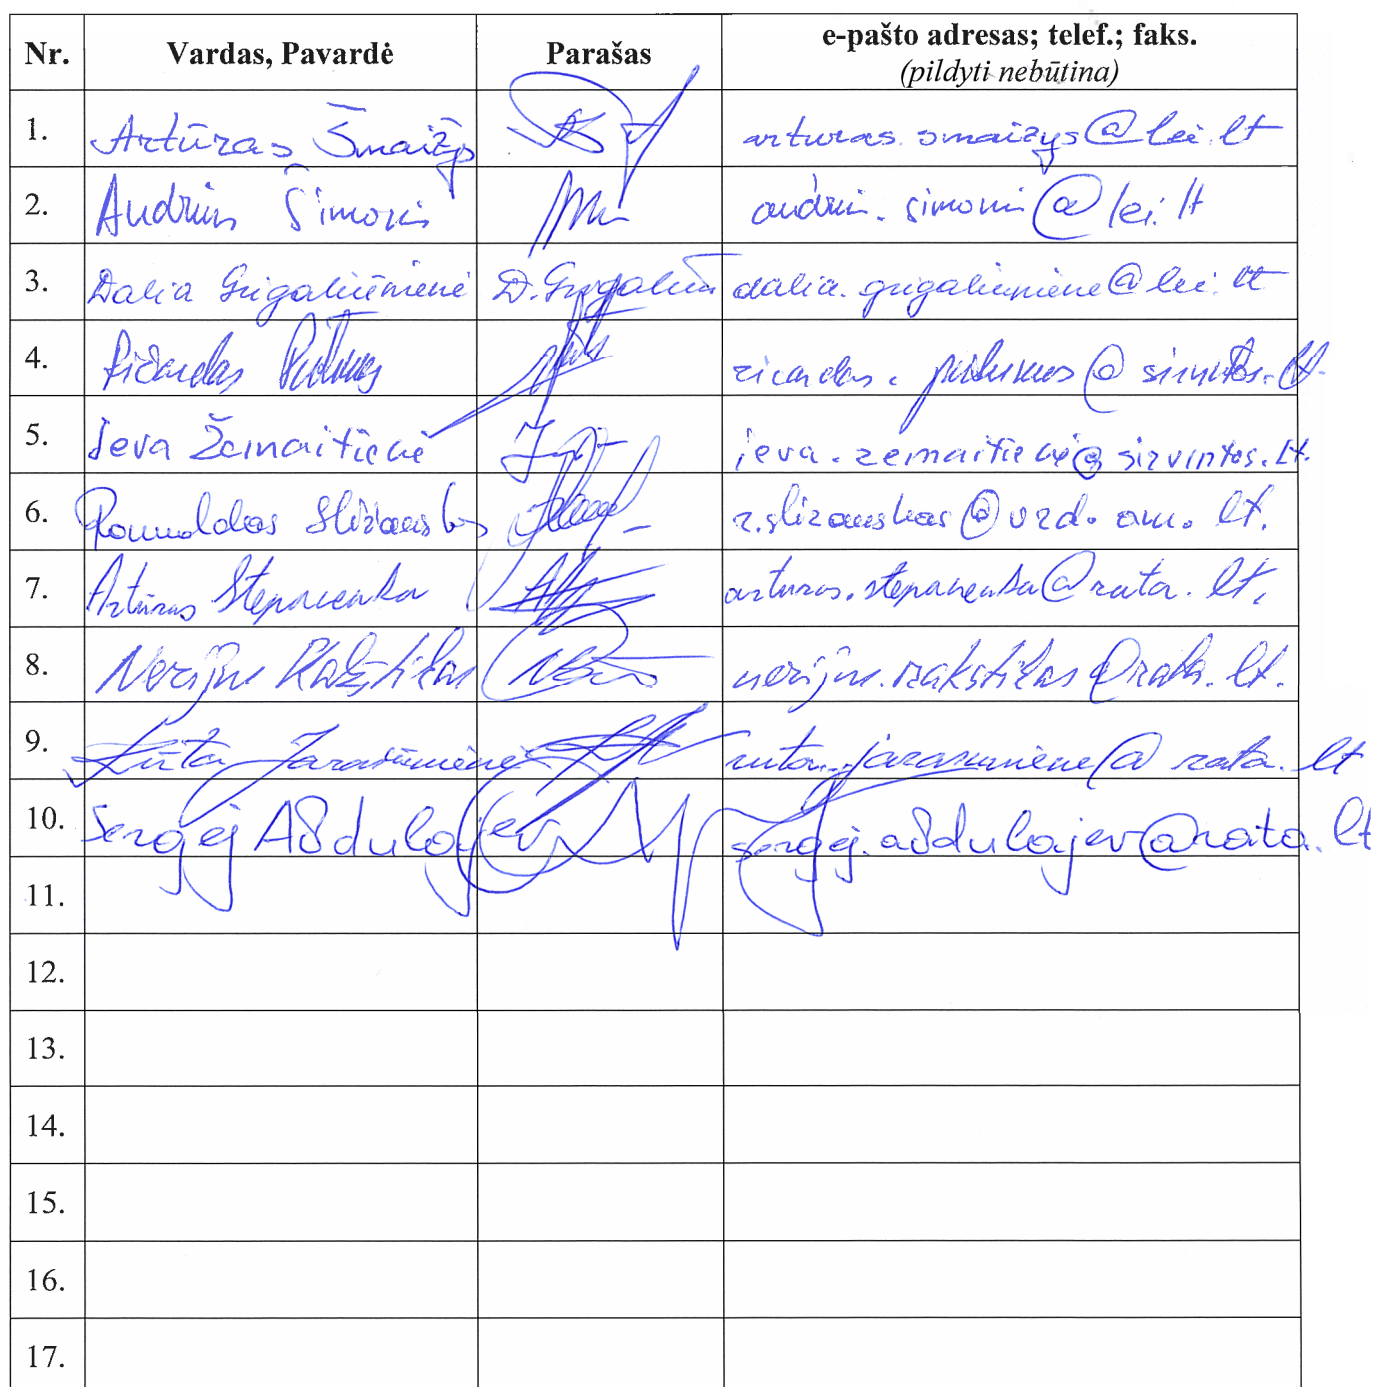 Nr. Vardas, Pavardė Parašas e-pašto adresas; telef.; faks.
(pildyti nebūtina)
1. Artūras Šmaižys arturas.smaizys@lei.lt
2. Andrius Šimonis @lei.lt
3. Dalia Grigaliūnienė D. Grigaliūn dalia.grigaliuniene@lei.lt
4. Ričardas ricardas.
5. Ieva Žemaitienė ieva.zemaitiene@sirvintos.lt.
6. Romualdas r.slizauskas@vrd.am.lt.
7. Artūras Stepanenka arturas.stepanenka@rata.lt.
8. Nerijus Rakštikas nerijus.rakstikas@rata.lt.
9. Rūta Jarašūnienė ruta.jarasuniene@rata.lt
10. Sergej Abdulajev sergej.abdulajev@rata.lt
11.
12.
13.
14.
15.
16.
17.